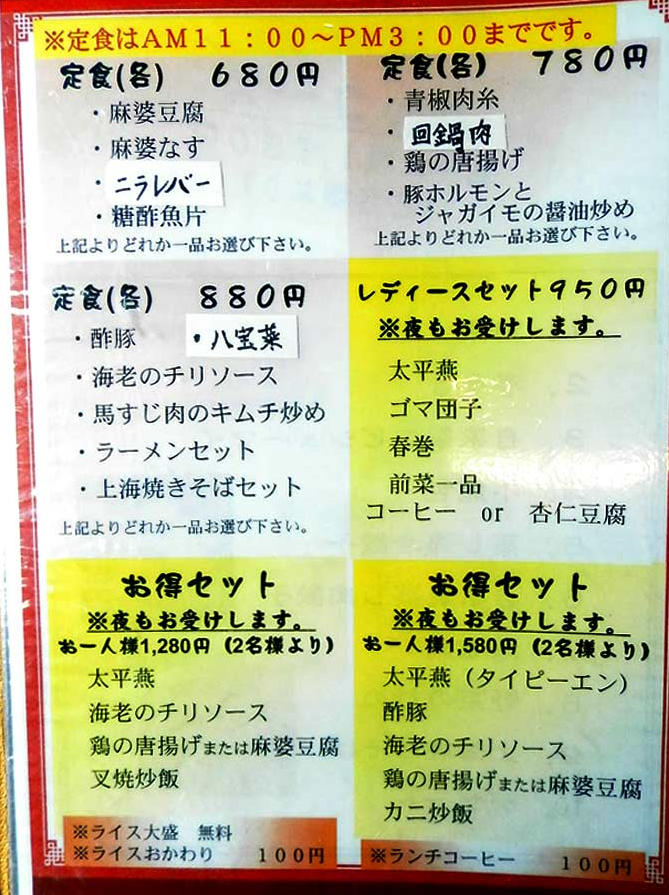 ※定食はAM11：00～PM3：00までです。
定食(各)　680円
・麻婆豆腐
・麻婆なす
・ニラレバー
・糖酢魚片
上記よりどれか一品お選び下さい。
定食(各)　780円
・青椒肉糸
・回鍋肉
・鶏の唐揚げ
・豚ホルモンと
ジャガイモの醤油炒め
上記よりどれか一品お選び下さい。
定食(各)　880円
・酢豚　・八宝菜
・海老のチリソース
・馬すじ肉のキムチ炒め
・ラーメンセット
・上海焼きそばセット
上記よりどれか一品お選び下さい。
レディースセット950円
※夜もお受けします。
太平燕
ゴマ団子
春巻
前菜一品
コーヒー　or　杏仁豆腐
お得セット
※夜もお受けします。
お一人様1,280円（2名様より）
太平燕
海老のチリソース
鶏の唐揚げまたは麻婆豆腐
叉焼炒飯
※ライス大盛　無料
※ライスおかわり　100円
お得セット
※夜もお受けします。
お一人様1,580円（2名様より）
太平燕（タイピーエン）
酢豚
海老のチリソース
鶏の唐揚げまたは麻婆豆腐
カニ炒飯
※ランチコーヒー　100円